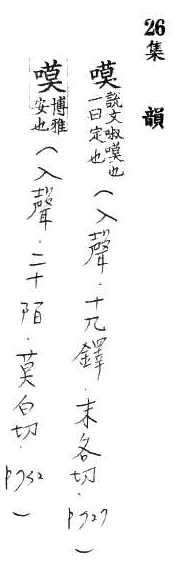 26集 韻
嗼 説文啾嗼也一曰定也（入聲．十九鐸．末各切．p727）
嗼 博雅安也（入聲．二十陌．莫白切．p732）